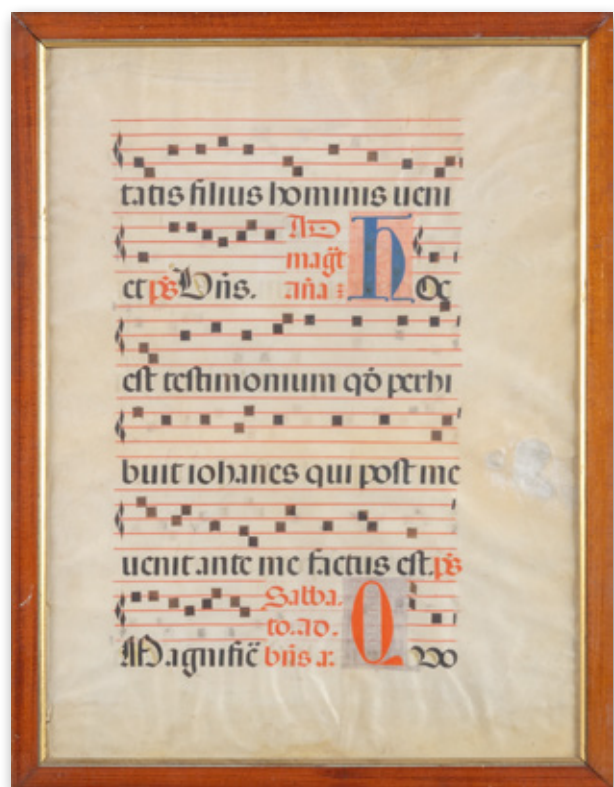 tatis filius hominis ueni
et ps Dn̄s. Ad magt̄ an̄a : H oc
est testimonium qō perhi
buit iohanes qui post me
uenit ante me factus est. ps
Magnific̄ Sabba. to. ad. bn̄s a: Q uo